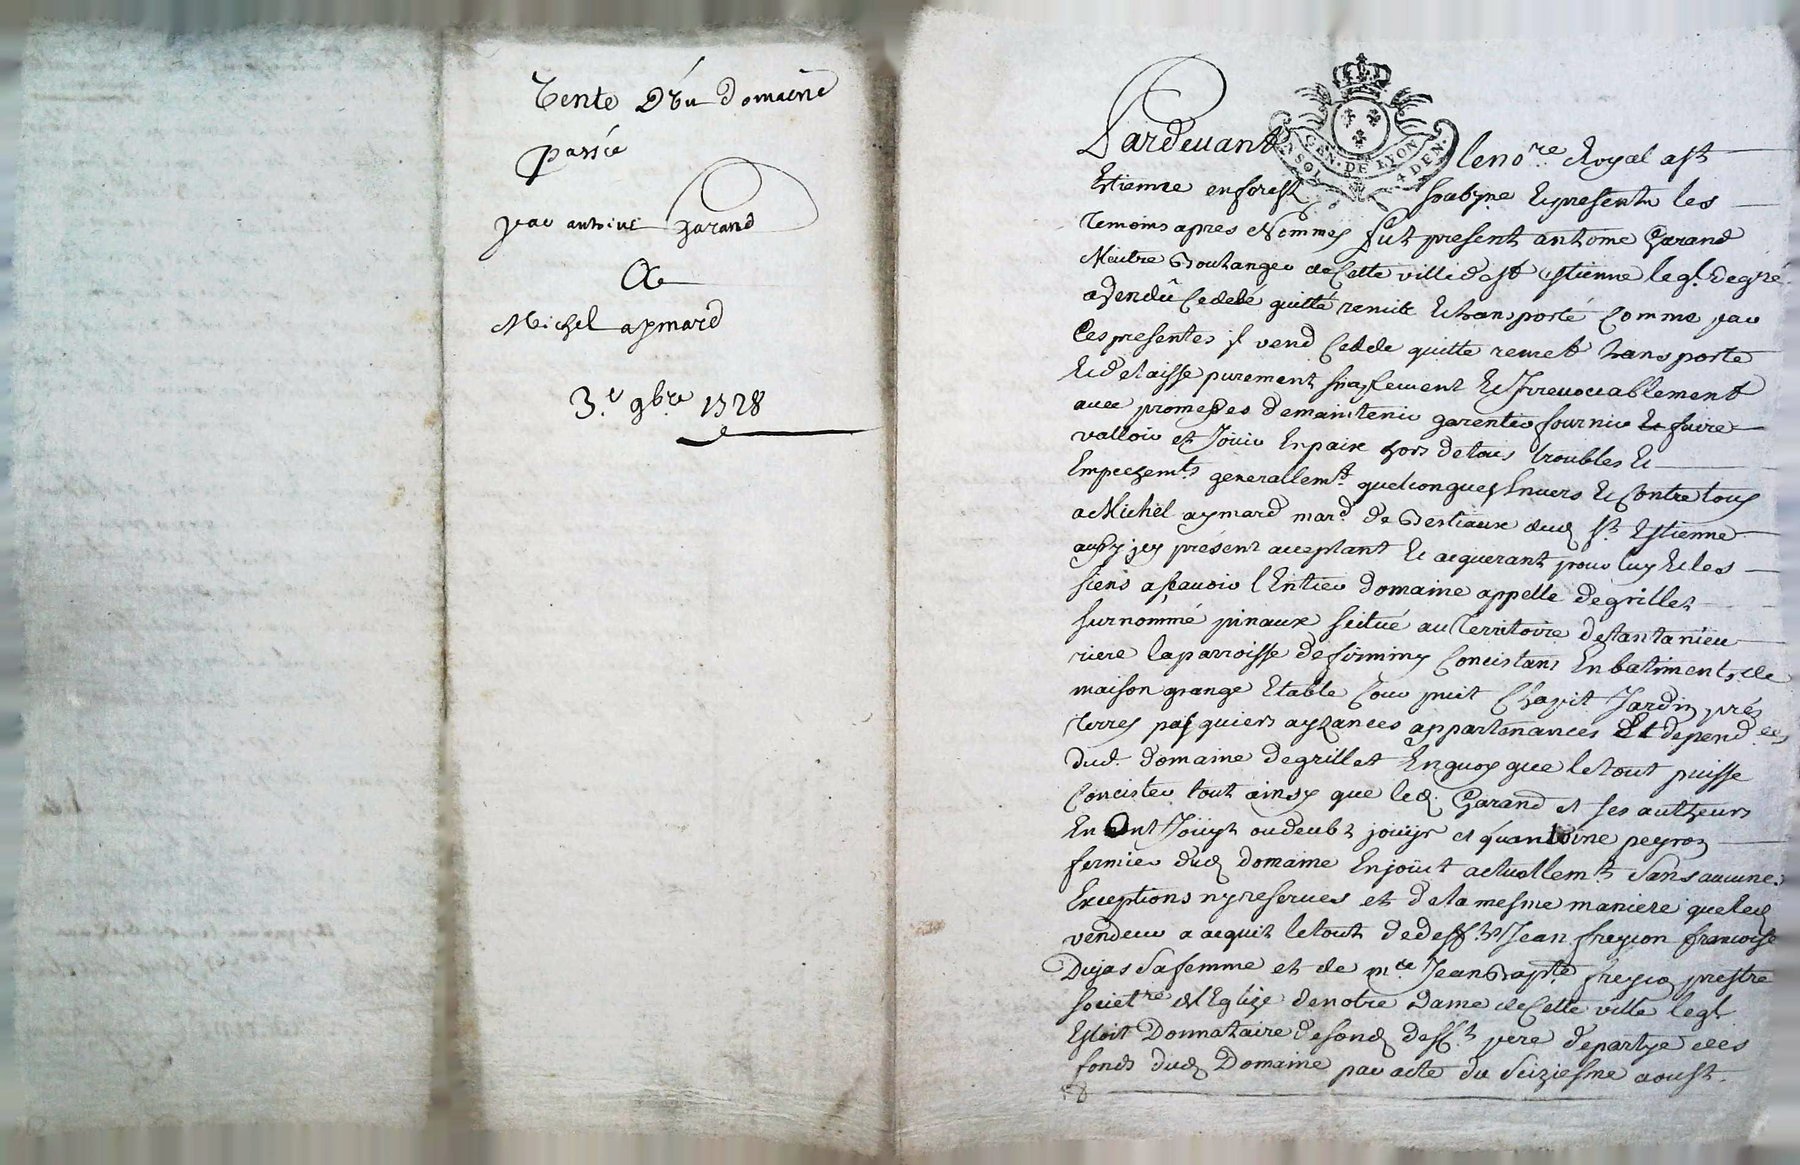 Vente D'vn Domaine
passée
par antoine Garand
A
Michel aymard
3.e 9bre 1728
Pardevant le no.re Royal a St
GEN. DE LYON
4 DEN.
Estienne en forest soubzne Et presents les
temoins apres Nommes fut present antoine Garand
Maitre Boulanger de Cette ville de St Estienne leql. de gré
a Vendû Ceddé quitté remit Et transporté Comme par
Ces presentes jl vend Cedde quitte remet transporte
Et delaisse purement simplement Et Irrevocablement
avec promesses de maintenir garentir fournir Et faire
valloir et Joüir En paix hors de tous troubles Et
Empechemts. generallemt. quelconques Envers Et Contre tous
a Michel aymard mard. de Bestiaux dud St. Estienne
aussy jcy présent acceptant Et acquerant pour luy Et les
siens a sçavoir l'Entier domaine appellé de grillet
surnommé pinaux scitué au Territoire de tantanieu
riere la parroisse de firminy Concistant En batiments, de
maison grange Etable Cour puit Chapit Jardin prés
terres pasquiers ayzances appartenances Et depend.ces
dud. domaine de grillet En quoy que le tout puisse
Concister tout ainsy que led. Garand et ses autheurs
En Ont Joüyt ou deubt joüyr et qu'antoine peyron
fermier dud domaine En joüit actuellemt. Sans aucune
Exceptions ny reserves et de la mesme maniere que led
vendeur a acquit le tout de deffts. Jean freycon francoise
Dujas Sa femme et de mre Jean Bapte. freycon prestre
societre de l'Eglize de notre dame de Cette ville leql
Estoit Donnataire de fond deft. pere de partye des
fonds dud Domaine par acte du Seiziesme aoust